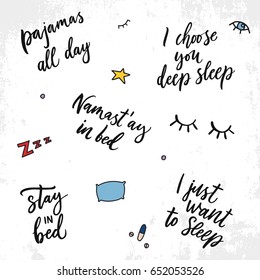 pajamas
all day
I choose
you
deep sleep
Namast'ay
in bed
Zzz
stay
IN
bed
I just
want
to Sleep
www.shutterstock.com · 652053526